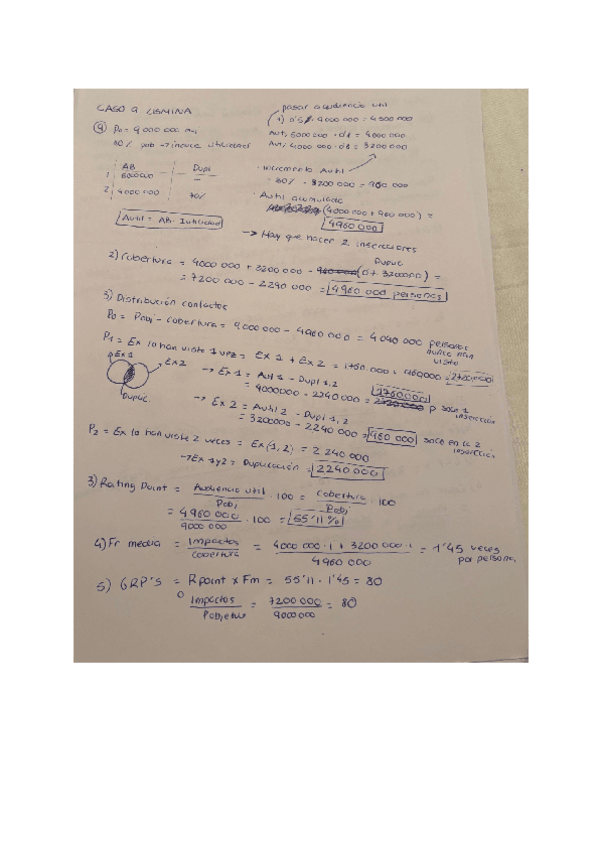 CASO 9 LISMINA
9 Po = 9000 000
80% pob → índice utilidad
AB Dupl
1 5000000 —
2 4000000 70%
Autil = AB · I utilidad
pasar a audiencia util
1) 0'5 · 9000 000 = 4500 000
Aut1 5000 000 · 0'8 = 4000 000
Aut2 4000 000 · 0'8 = 3200 000
· Incremento Autil
- 30% · 3200 000 = 960 000
· Autil acumulada
(4000 000 + 960 000) =
4960 000
→ Hay que hacer 2 inserciones
2) Cobertura = 4000 000 + 3200 000 - (0'7 · 3200000) =
Duplic
= 7200 000 - 2240 000 = 4960 000 personas
3) Distribución contactos
Po = Pobj - cobertura = 9000 000 - 4960 000 = 4040 000 personas nunca han visto
P1 = Ex lo han visto 1 vez = Ex 1 + Ex 2 = 1760.000 + 960000 = 2720000
Ex1
Ex2
Duplic.
→ Ex 1 = Aut 1 - Dupl 1,2
= 4000000 - 2240 000 = 1760000 p solo 1 inserción
→ Ex 2 = Autil 2 - Dupl 1,2
= 3200000 - 2240 000 = 960 000 solo en la 2 inserción
P2 = Ex lo han visto 2 veces = Ex(1,2) = 2 240 000
→ Ex 1y2 = Duplicación = 2240 000
3) Rating Point = Audiencia util / Pobj · 100 = Cobertura / Pobj · 100
= 4960 000 / 9000 000 · 100 = 55'11%
4) Fr media = Impactos / Cobertura = 4000 000 · 1 + 3200 000 · 1 / 4960 000 = 1'45 veces por persona
5) GRP'S = R point x Fm = 55'11 · 1'45 = 80
o Impactos / Pobjetivo = 7200 000 / 9000000 = 80